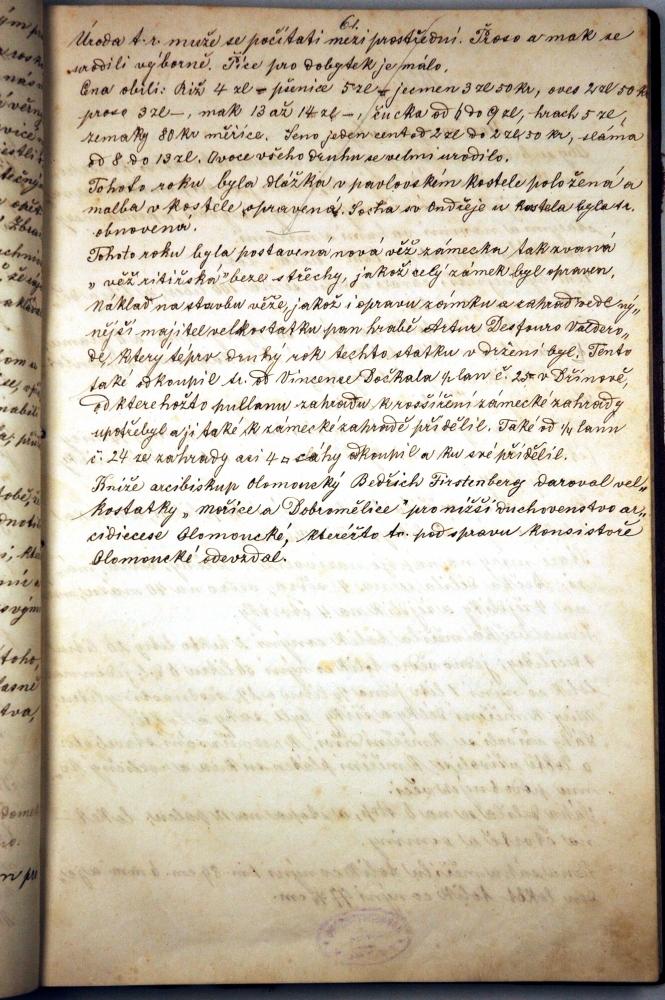 61.
Úroda t. r. muže se počítati mezi prostřední. Proso a mak se
urodili výborně. Píce pro dobytek je málo.
Cna obilí: Riž 4 zl – pšenice 5 zl – ječmen 3 zl 50 kr, oves 2 zl 50 k
proso 3 zl –, mak 13 až 14 zl –, žucka od 6 do 9 zl, hrach 5 zl,
zemaky 80 kr měřice. Seno jeden cent od 2 zl do 2 zl 50 kr, sláma
od 8 do 13 zl. Ovoce všeho druhu se velmi urodilo.
Tohoto roku byla dlážka v pavlovském kostele položená a
malba v kostele opravená. Socha sv Ondřeje u kostela byla t. r.
obnovená.
Tohoto roku byla postavená nová věž zámecka tak zvaná
„věž ritiřská“ beze střechy, jakož celý zámek byl opraven.
Náklad na stavbu věže, jakož i opravu zámku a zahrad vedl ný„
nější majitel velkostatku pan hrabě Artur Desfours Valdero„
de, který téprv druhý rok techto statku v držení byl. Tento
také odkoupil t. r. od Vincence Dočkala ¼ lan č. 25 v Dřínově,
od kterehožto pullanu zahradu k rosšíření zámecké zahrady
upotřebyl a ji také k zámecké zahradě přidělil. Také od ¼ lanu
č. 24 ze zahrady asi 4 □ sáhy odkoupil a ku své přidělil.
Kníže arcibiskup Olomoucký Bedřich Firstenberg daroval vel„
kostatky „Mořice a Dobromělice“ pro nižší duchovenstvo ar„
cidiecese Olomoucké, kteréžto t. r. pod spravu konsistoře
Olomoucké odevzdal.